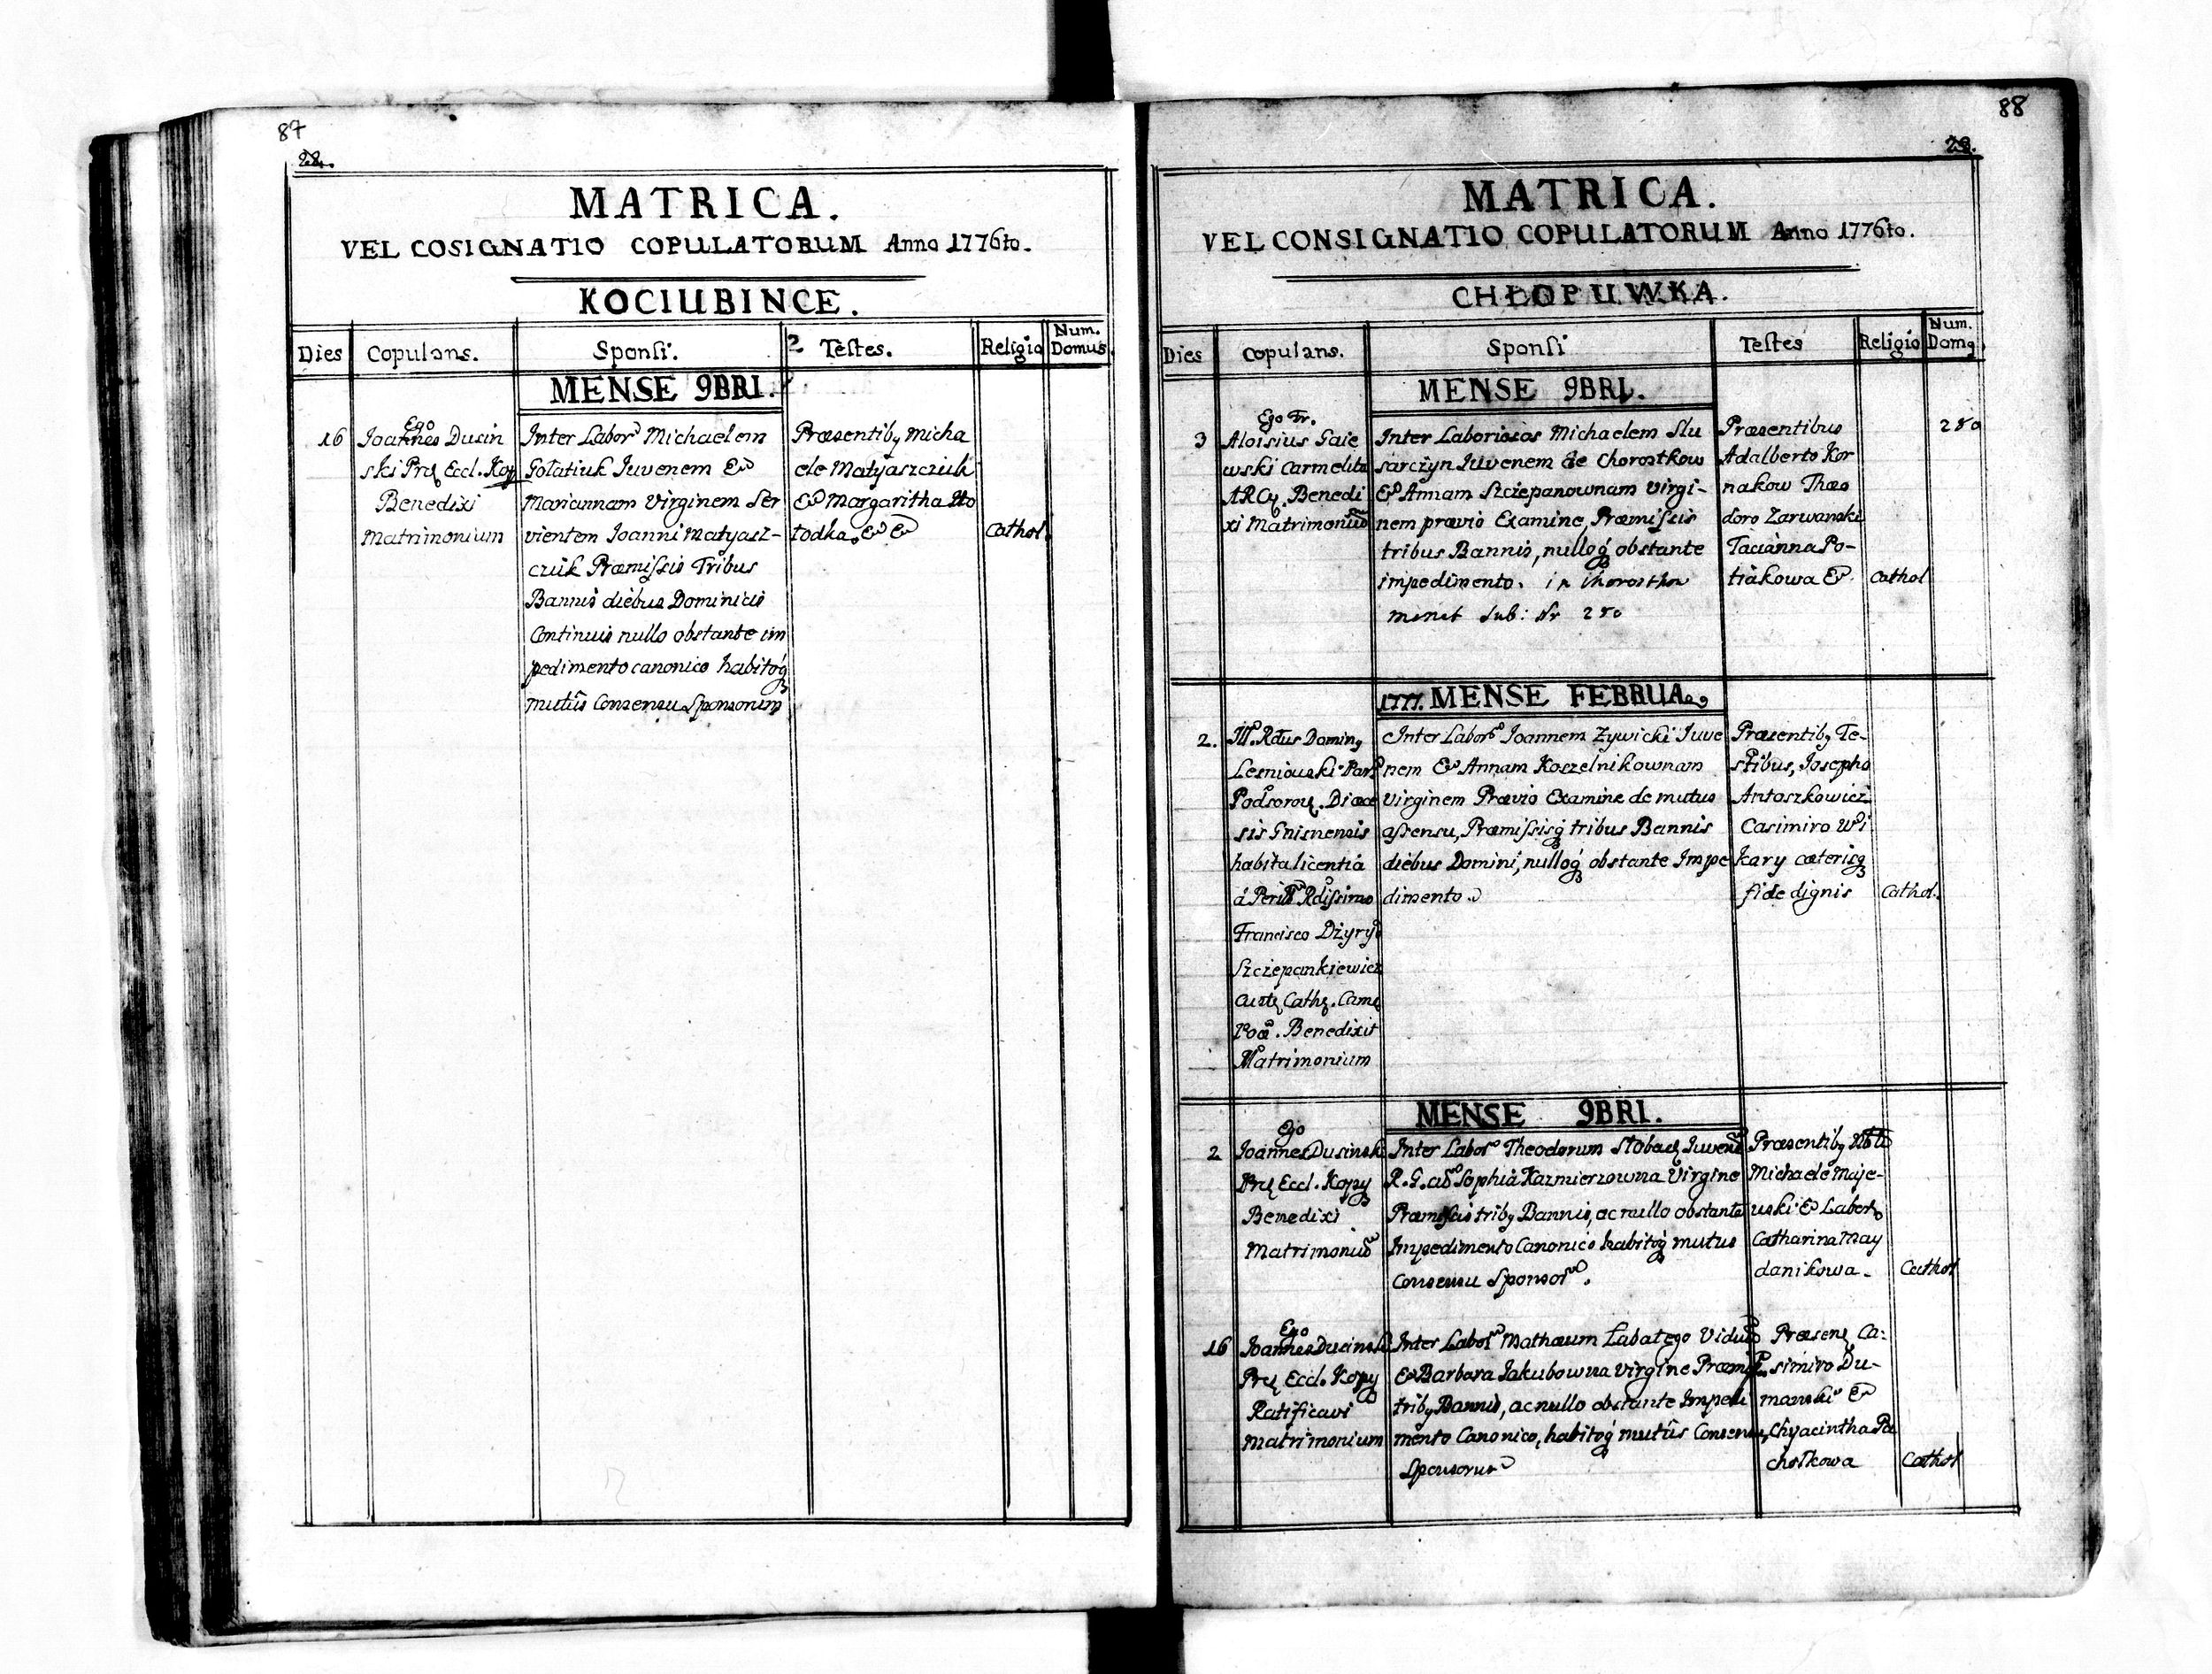 87
28.
MATRICA.
VEL COSIGNATIO COPULATORUM Anno 1776to.
KOCIUBINCE.
Dies Copulans. Sponsi. 2 Testes. Religio Num. Domus.
MENSE 9BRI.
16
Ego
Joannes Dusin
ski Eccl. Kop
Benedixi
Matrimonium
Inter Labor Michaelem
Gołatiuk Juvenem &
Mariannam Virginem Ser
vientem Joanni Matyasz-
czuk Præmissis Tribus
Bannis diebus Dominicis
Continuis nullo obstante im
pedimento canonico habitoq
mutûs Consensu Sponsorum
Præsentib9 Micha
ele Matyaszczuk
& Margaritha
todka. & &
Cathol.
88
29.
MATRICA.
VEL CONSIGNATIO COPULATORUM Anno 1776to.
CHŁOPUWKA.
Dies Copulans. Sponsi Testes Religio Num. Dom9.
MENSE 9BRI.
3
Ego Fr.
Aloisius Gaie
wski Carmelita
Benedi
xi Matrimoniũ
Inter Laboriosos Michaelem Slu
sarczyn Juvenem de Chorostkow
& Annam Szczepanownam Virgi-
nem prævio Examine, Præmissis
tribus Bannis, nulloq obstante
impedimento. in Chorostkow
manet sub: Nr 280
Præsentibus
Adalberto Kor
nakow Theo
doro Zarwanski
Tacianna Po-
tiakowa &.
Cathol
280
1777. MENSE FEBRUA.
2.
Rdus Domin9
Lesniowski
Diœce
sis Gnisnensis
habita licentiâ
á Rdissimo
Francisco
Szczepankiewicz
Cath.
Benedixit
Matrimonium
Inter Labor Joannem Zywicki Juve
nem & Annam Koszelnikownam
Virginem Prævio Examine de mutuo
assensu, Præmissisq tribus Bannis
diebus Domini, nulloq obstante Impe
dimento.
Præsentib9 Te-
stibus, Josepho
Antoszkowicz
Casimiro Wi
kary cæterisq
fide dignis
Cathol.
MENSE 9BRI.
2
Ego
Joannes Dusinski
Eccl. Kopy
Benedixi
Matrimoniũ
Inter Labor Theodorum Juvenẽ
R. G. Sophiâ Kazmierzowna Virgine
Præmissis trib9 Bannis, ac nullo obstante
Impedimento Canonico habitoq mutuo
Consensu Sponsor.
Præsentib9
Michaele Maje-
wski & Labor
Catharina May
danikowa.
Cathol
16
Ego
Joannes Dusinski
Eccl. Kopy
Ratificavi
Matrimonium
Inter Labor Mathæum Łabatego Viduũ
& Barbara Jakubowna Virgine Præmiss
trib9 Bannis, ac nullo obstante Impedi
mento Canonico, habitoq mutûs Consensu
Sponsorum
Præsen Ca:
simiro Du-
manski &
Chyacintha Pa
chotkowa
Cathol